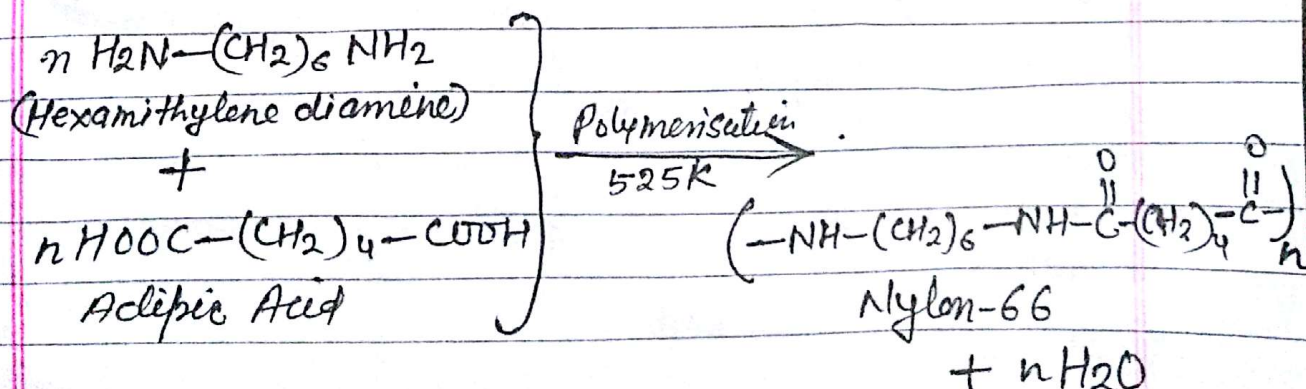 n H2N-(CH2)6 NH2
(Hexamithylene diamine)
+
n HOOC-(CH2)4-COOH
Adipic Acid
Polymerisation
525K
O O
(-NH-(CH2)6-NH-C-(CH2)4-C-)n
Nylon-66
+ nH2O